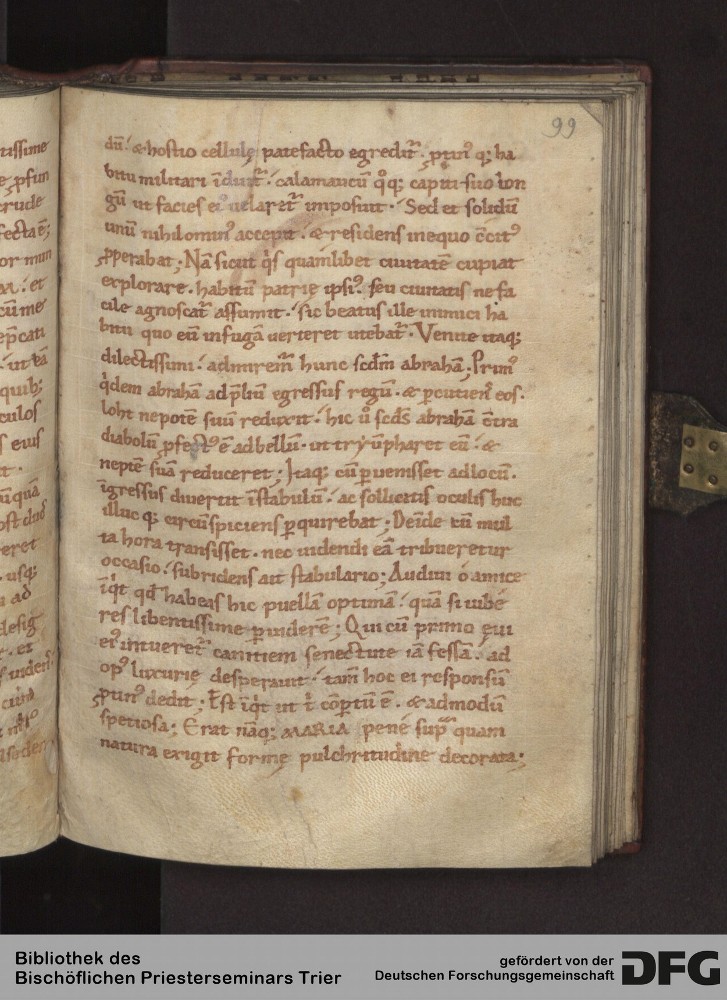 99
dū. & hostio cellulę patefacto egredit᷒. ꝓtin᷒ q; ha
bitu militari īduit᷒. calamaucū q̊q; capiti suo lon
gū ut facies ei᷒ uelaret᷒ imposuit. Sed et solidū
unū nihilomin᷒ accepit. & residens in equo ēcit᷒
ꝓperabat; Nā sicut q̇s quamlibet ciuitatē cupiat
explorare. habitū patrię ipsi᷒ seu ciuitatis ne fa
cile agnoscat᷒ assumit. sic beatus ille inimici ha
bitu quo eū in fugā uerteret utebat᷒. Venite itaq;
dilectissimi. admirem᷒ hunc scd̄m abrahā; Prim᷒
q̇dem abrahā ad p̄liū egressus regū. & ꝑcutiens eos.
loht nepotē suū reduxit. hic ů scd̄s abrahā ctra
diabolū ꝓfect᷒ ē ad bellū. ut triūpharet eū. &
neptē suā reduceret; Itaq; cū ꝑuenisset ad locū.
īgressus diuertit ī stabulū. ac sollicitis oculis huc
illuc q; circūspiciens ꝑquirebat; Deīde cū mul
ta hora transisset. nec uidendi eā tribueretur
occasio. subridens ait stabulario; Audiui o amice
īq̇t qd̄ habeas hic puellā optimā. quā si iubē
res libentissime ꝑuiderē; Qui cū primo ęui
ei᷒ intueret᷒ canitiem senectute iā fessā. ad
op᷒ luxurię desperauit. tam̄ hoc ei responsū
ꝓtin᷒ dedit; Est īq̇t ut t̄ cōꝑtū ē. & admodū
speciosa; Erat nāq; MARIA pene sup᷒ quam
natura exigit formę pulchritudine decorata;
tissime
ꝓfun
crude
fecta ē;
et
cū me
ut eā
quib;
culos
eius
usq;
ad
desig
et
Bibliothek des
Bischöflichen Priesterseminars Trier
gefördert von der
Deutschen Forschungsgemeinschaft
DFG